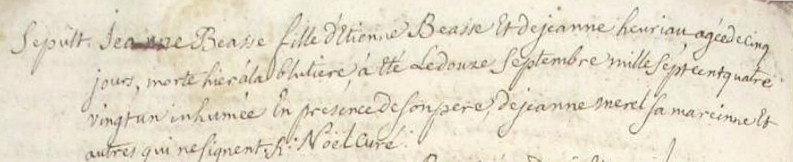 Sepult. Jeanne Beasse fille d'Etienne Beasse Et de jeanne heuriau agée de cinq
jours, morte hier à la blutiere, à Eté Le douze Septembre mille Sept cent quatre
vingt un inhumée En presence de son pere, de jeanne merel sa mareinne Et
autres qui ne signent, Noël Curé.